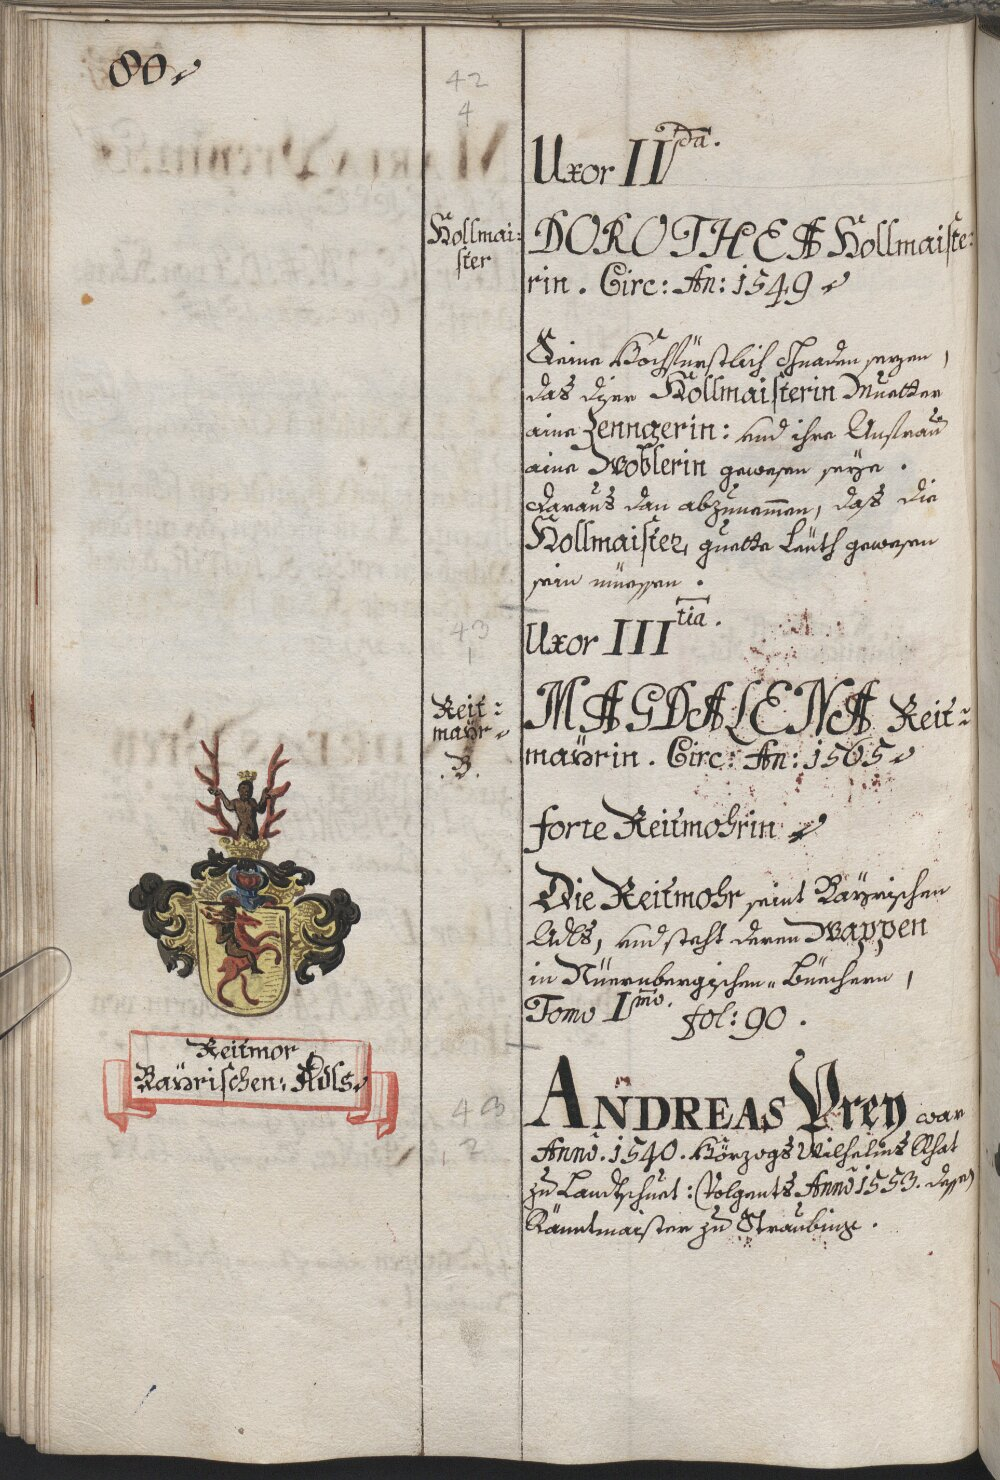 80.
42
4
Uxor II da.
Kollmai:
ster
DOROTHEA Kollmaiste:
rin. Circ: An: 1549.
Seine Hochfürstlich Gnaden sezen,
das diser Kollmaisterin Muetter
aine Zenngerin: und ihre Anfrau
aine Woblerin gewesen seye.
Daraus dan abzunemmen, dass die
Kollmaister, guette Leüth gewesen
sein müessen.
43
1
Uxor III tia.
Reit:
mayr.
.B.
MAGDALENA Reit:
mayrin. Circ: An: 1565.
forte Reitmohrin.
Die Reitmohr seint Bayrischen
Adls, und steht deren Wappen
in Nüernbergischen Büechern,
Tomo I mo. fol: 90.
Reitmor
Bayrischen: Adls.
43
2
ANDREAS Prey war
Anno. 1540. Hörzogs Wilhelms Rhat
zu Landtshuet: Volgents Anno 1553. dessen
Ränntmaister zu Straubing.